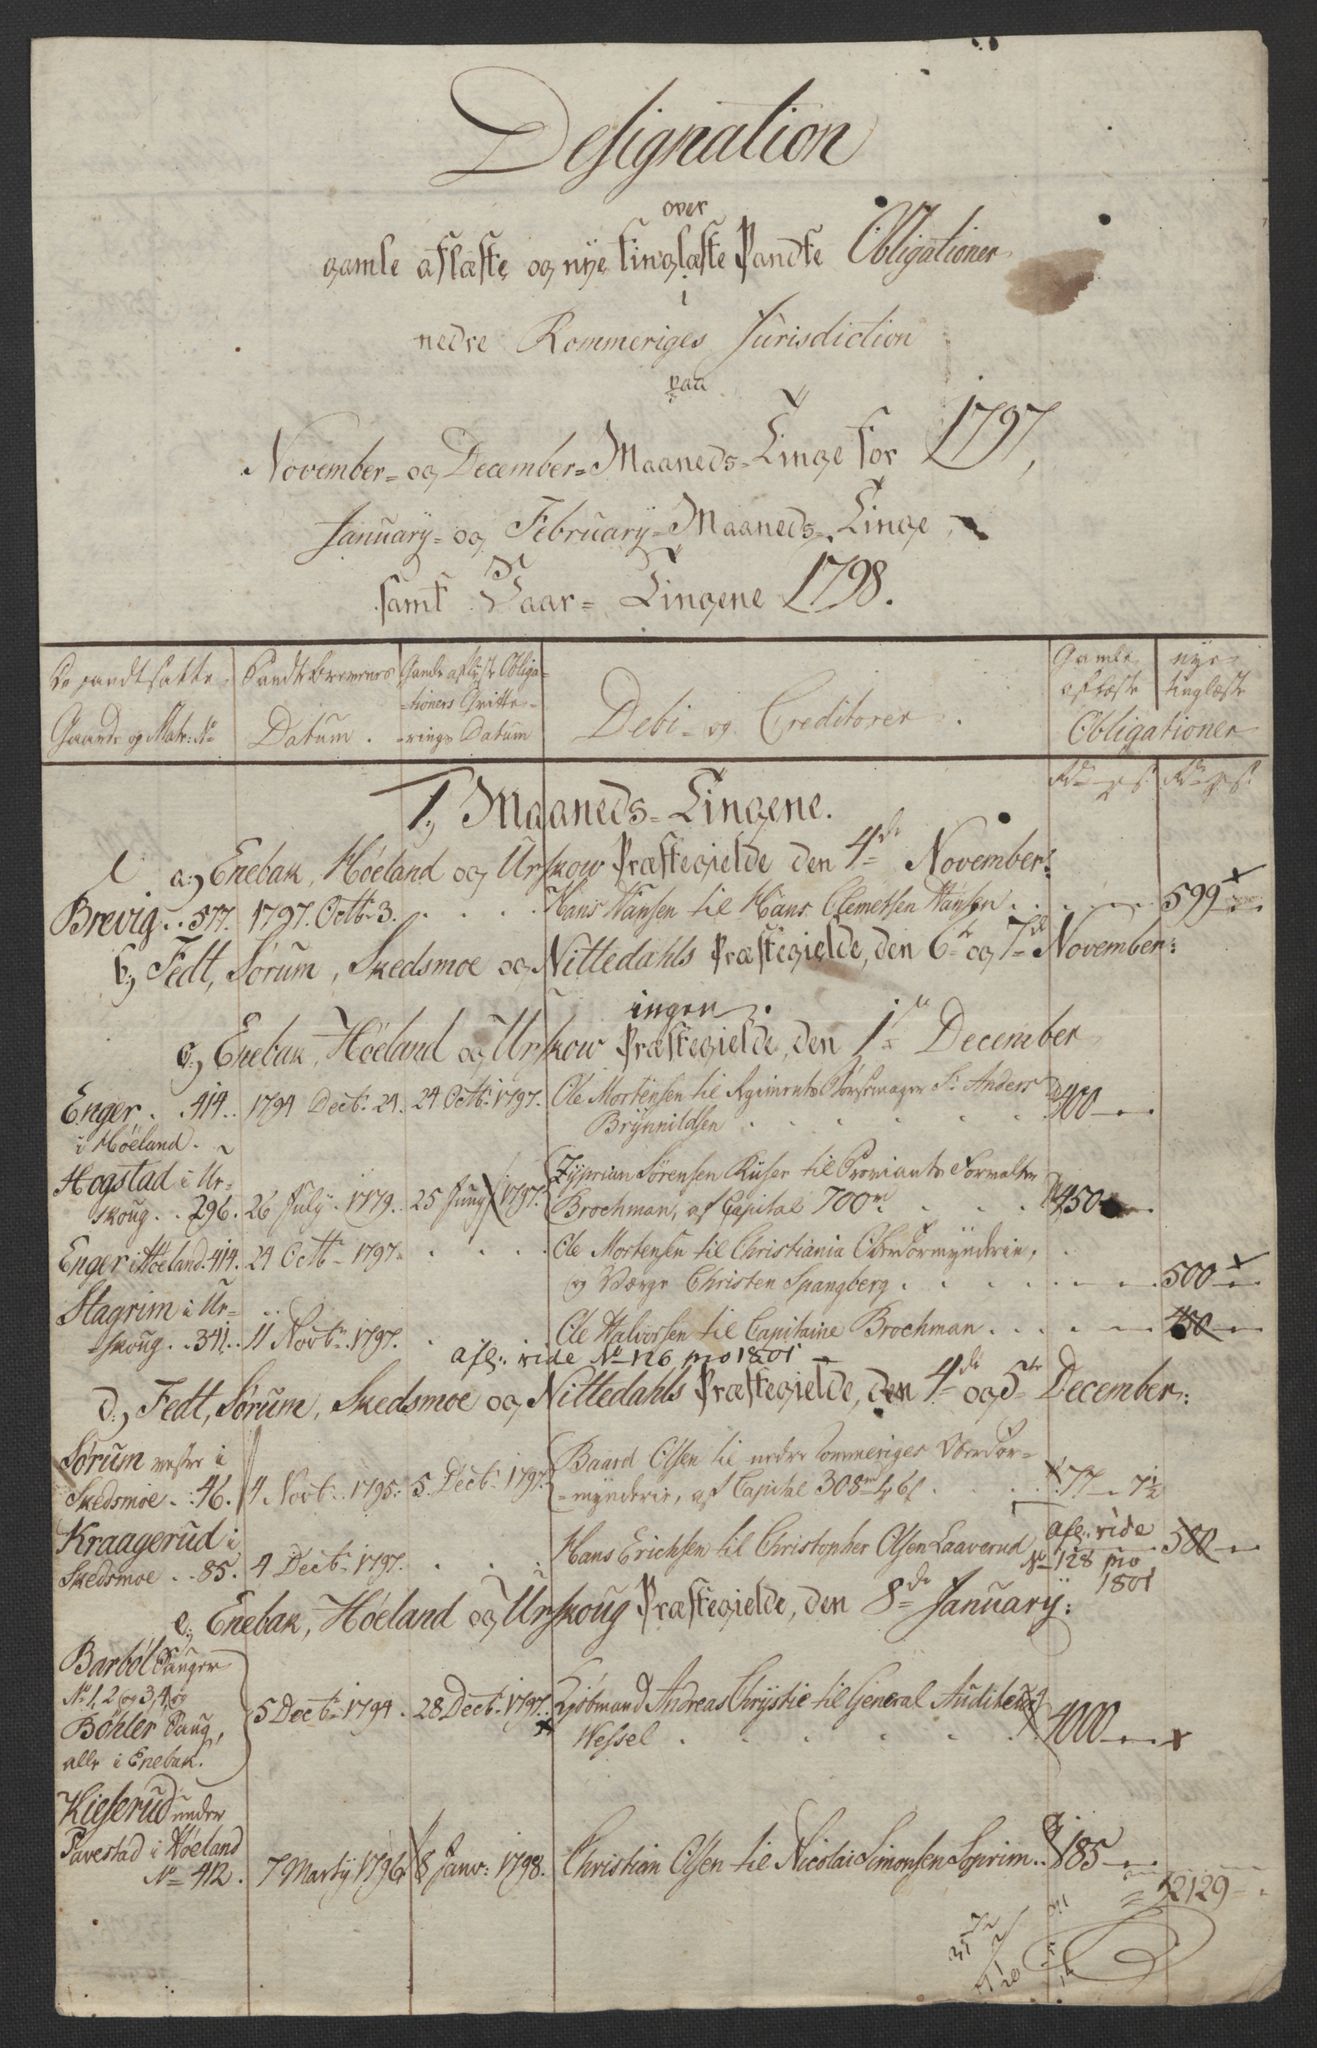 Designation
over
gamle aflæste og nye tinglæste Pandte Obligationer
i
nedre Rommeriges Jurisdiction
paa
November- og December-Maaneds-Tinge for 1797,
January- og February-Maaneds-Tinge,
samt Vaar-Tingene 1798.
De pandtsatte Gaarde og Matr: No
Pandtebrevenes Datum.
Gamle aflyste Obligationers Qvitterings Datum
Debi- og Creditorer.
Gamle aflæste
nye tinglæste
Obligationer
Rdr s Rdr s
1, Maaneds-Tingene.
a, Enebak, Høeland og Urskow Præstegielde den 4de November:
Brevig.. 577. 1797. Octbr 3. Hans Hansen til Hans Clemetsen Hansen 599
b, Fedt, Sørum, Skedsmoe og Nittedahls Præstegielde, den 6te og 7de November:
ingen.
c, Enebak, Høeland og Urskow Præstegielde, den 1te December
Enger. 414.. 1794 Decbr 24. 24 Octbr 1797. Ole Mortensen til Regiments Sr Anders 900
i Høeland. Brynnildsen
Hogstad i Ur- Zyprian Sørensen Kuser til Proviants Forvalter
skoug.. 296. 26 July 1779. 25 Juny 1797. Brochman, af Capital 700 450
Enger i Høeland. 414. 24 Octbr 1797. Ole Mortensen til Christiania Overformynderie,
og Værge Christen Spangberg 500
Hagrim i Ur-
skoug.. 341.. 11 Novbr. 1797. Ole Halvorsen til Capitaine Brochman 400
afl: vide No 126 pro 1801
d, Fedt, Sørum, Skedsmoe og Nittedahls Præstegielde, den 4de og 5te December:
Sørum vestre i Baard Olsen til nedre Rommeriges Overfor-
Skedsmoe.. 46. 4 Novbr. 1795. 5 Decbr 1797. mynderie, af Capital 308 77 7½
Kraagerud i afl: vide
Skedsmoe.. 85. 4 Decbr 1797. Hans Erichsen til Christopher Olsen Laaverud No 128 pro 500
1801
e, Enebak, Høeland og Urskoug Præstegielde, den 8de January:
Barbøl Pauger
No 1, 2 og 3, 4, og 5 Decbr 1794. 28 Decbr 1797. Kjøbmand Andreas Chrystie til General Auditeur 4000
Bøhler Paug, Wessel
alle i Enebak.
Kieserud under
Tavestad i Høeland
No 412. 7 Marty 1796 8 Janv: 1798. Christian Olsen til Nicolai Simonsen 185
12129